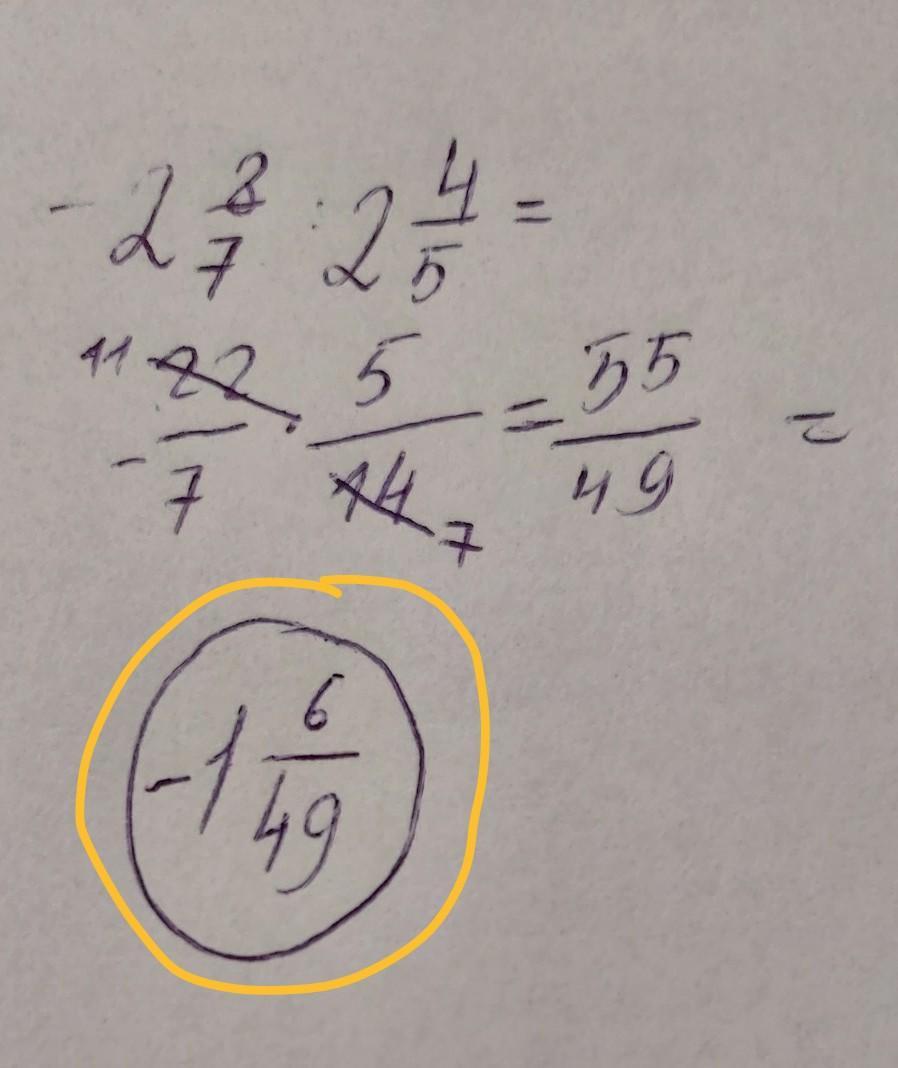 - 2 8/7 : 2 4/5 =
11 22/-7 · 5/14 7 = 55/49 =
-1 6/49